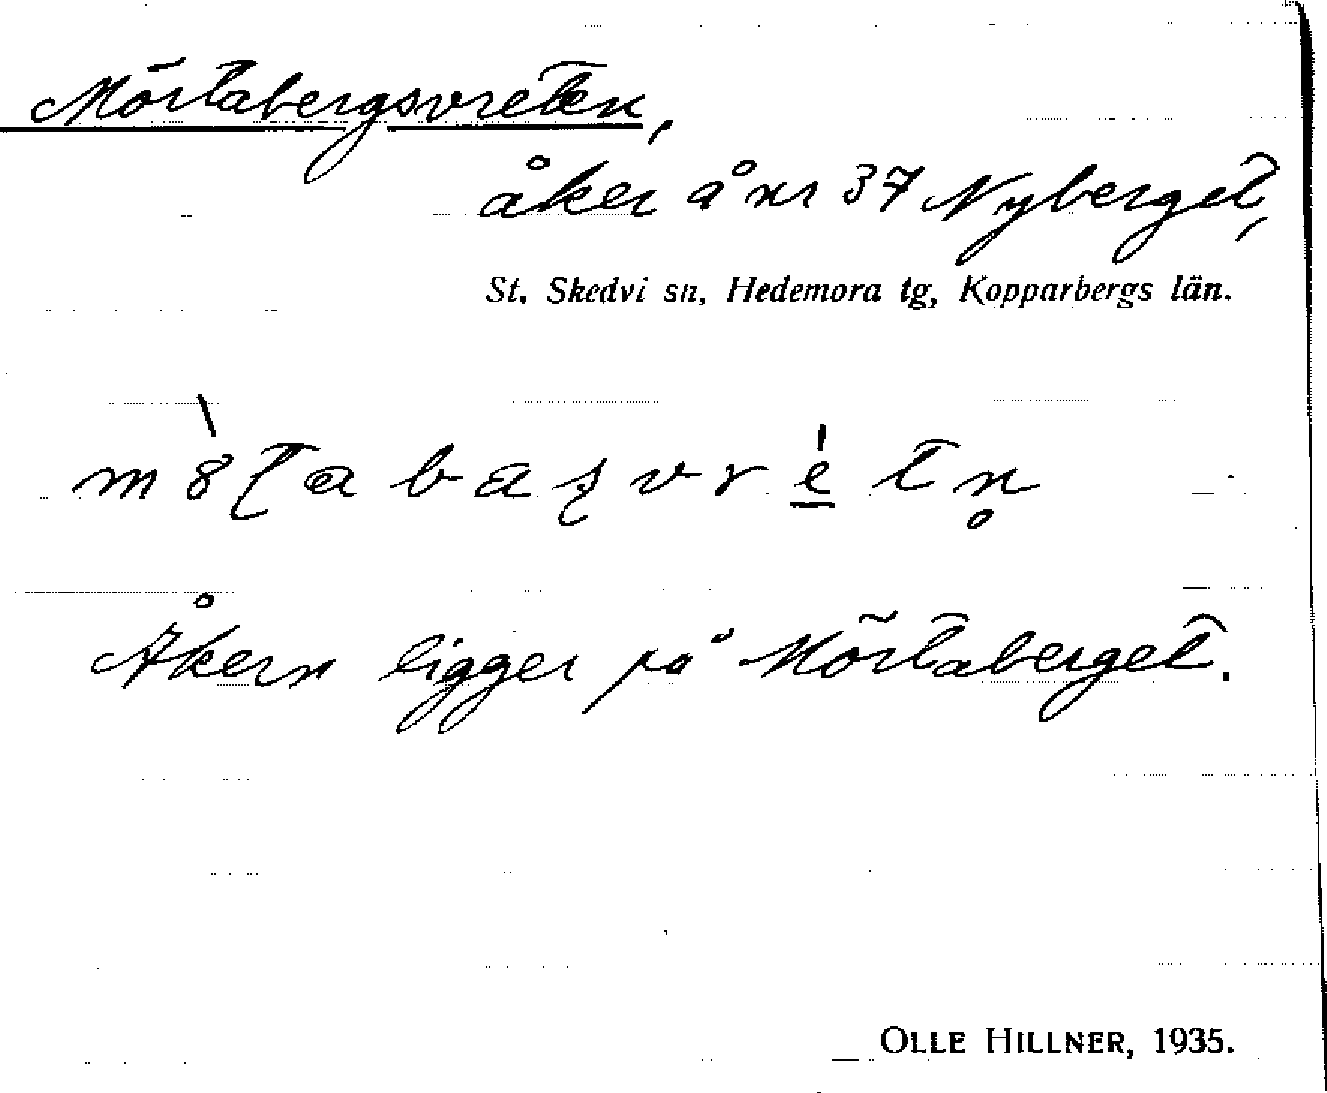 Mörtabergsvreten,
åker å nr 37 Nyberget,
St. Skedvi sn, Hedemora tg, Kopparbergs län.
Åkern ligger på Mörtaberget.
OLLE HILLNER, 1935.